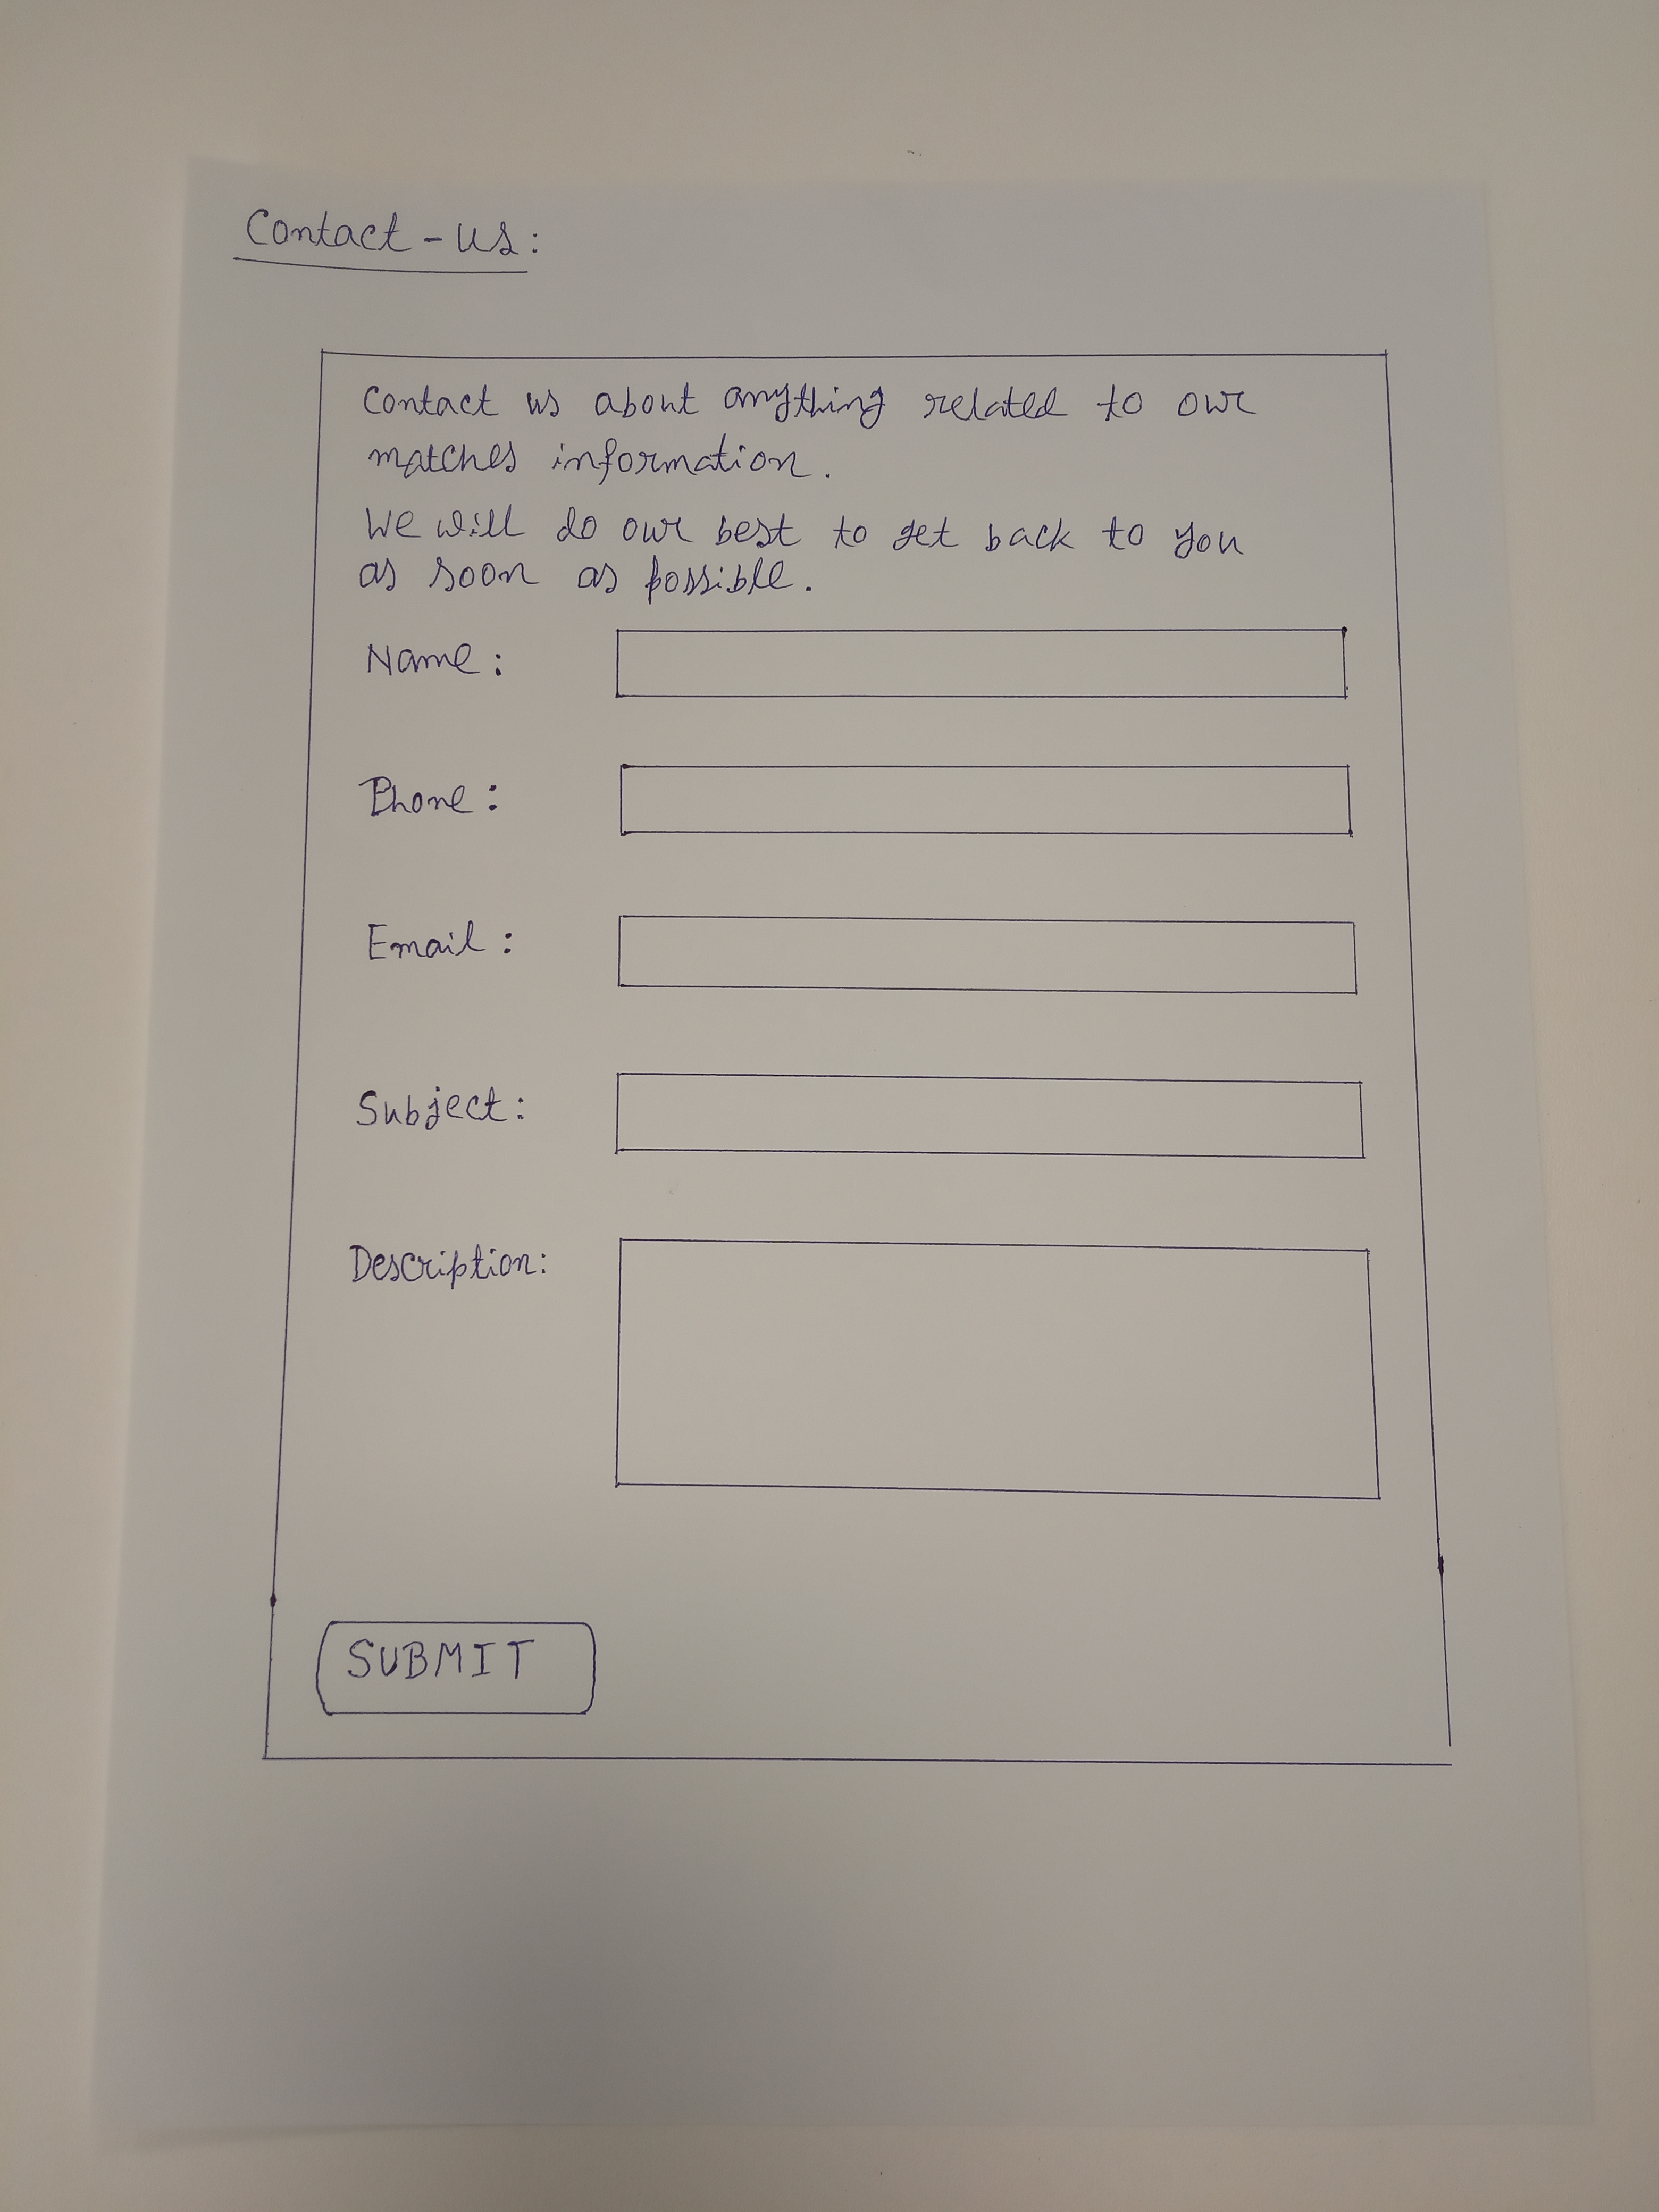 Contact-us:
Contact us about anything related to our
matches information.
We will do our best to get back to you
as soon as possible.
Name:
Phone:
Email:
Subject:
Description:
SUBMIT